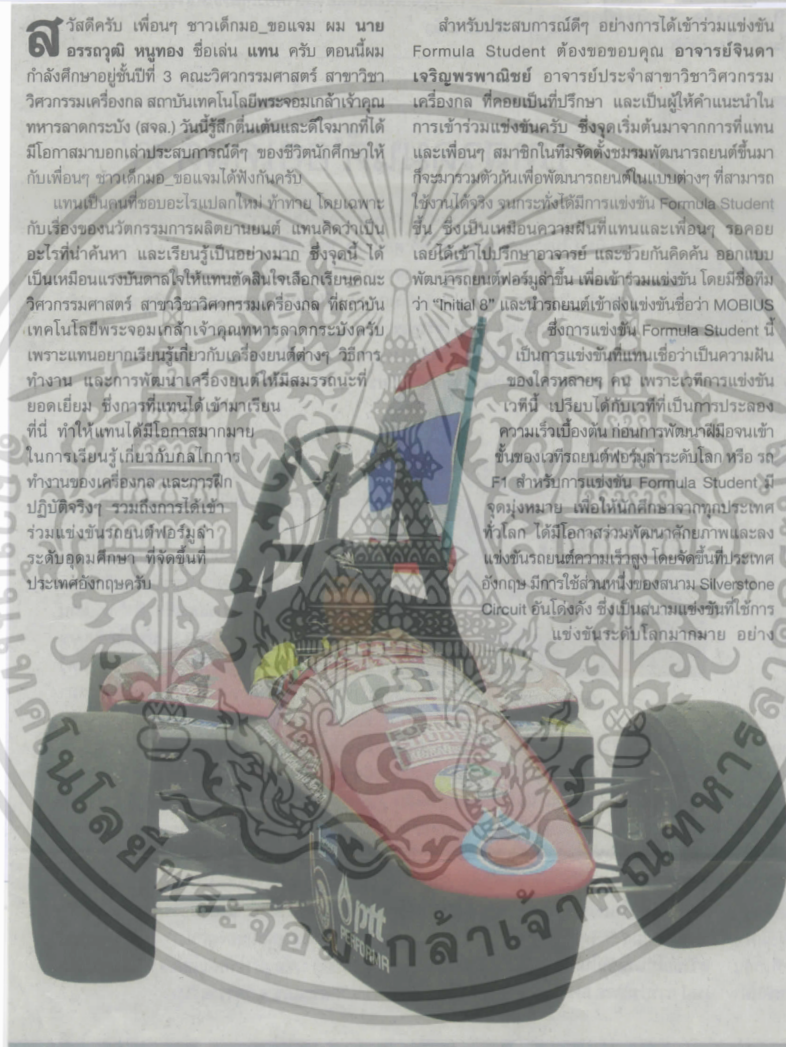 สวัสดีครับ เพื่อนๆ ชาวเด็กมอ_ขอแจม ผม นาย
อรรถวุฒิ หนูทอง ชื่อเล่น แทน ครับ ตอนนี้ผม
กำลังศึกษาอยู่ชั้นปีที่ 3 คณะวิศวกรรมศาสตร์ สาขาวิชา
วิศวกรรมเครื่องกล สถาบันเทคโนโลยีพระจอมเกล้าเจ้าคุณ
ทหารลาดกระบัง (สจล.) วันนี้รู้สึกตื่นเต้นและดีใจมากที่ได้
มีโอกาสมาบอกเล่าประสบการณ์ดีๆ ของชีวิตนักศึกษาให้
กับเพื่อนๆ ชาวเด็กมอ_ขอแจมได้ฟังกันครับ
แทนเป็นคนที่ชอบอะไรแปลกใหม่ ท้าทาย โดยเฉพาะ
กับเรื่องของนวัตกรรมการผลิตยานยนต์ แทนคิดว่าเป็น
อะไรที่น่าค้นหา และเรียนรู้เป็นอย่างมาก ซึ่งจุดนี้ ได้
เป็นเหมือนแรงบันดาลใจให้แทนตัดสินใจเลือกเรียนคณะ
วิศวกรรมศาสตร์ สาขาวิชาวิศวกรรมเครื่องกล ที่สถาบัน
เทคโนโลยีพระจอมเกล้าเจ้าคุณทหารลาดกระบังครับ
เพราะแทนอยากเรียนรู้เกี่ยวกับเครื่องยนต์ต่างๆ วิธีการ
ทำงาน และการพัฒนาเครื่องยนต์ให้มีสมรรถนะที่
ยอดเยี่ยม ซึ่งการที่แทนได้เข้ามาเรียน
ที่นี่ ทำให้แทนได้มีโอกาสมากมาย
ในการเรียนรู้เกี่ยวกับกลไกการ
ทำงานของเครื่องกล และการฝึก
ปฏิบัติจริงๆ รวมถึงการได้เข้า
ร่วมแข่งขันรถยนต์ฟอร์มูล่า
ระดับอุดมศึกษา ที่จัดขึ้นที่
ประเทศอังกฤษครับ
สำหรับประสบการณ์ดีๆ อย่างการได้เข้าร่วมแข่งขัน
Formula Student ต้องขอขอบคุณ อาจารย์จินดา
เจริญพรพาณิชย์ อาจารย์ประจำสาขาวิชาวิศวกรรม
เครื่องกล ที่คอยเป็นที่ปรึกษา และเป็นผู้ให้คำแนะนำใน
การเข้าร่วมแข่งขันครับ ซึ่งจุดเริ่มต้นมาจากการที่แทน
และเพื่อนๆ สมาชิกในทีมจัดตั้งชมรมพัฒนารถยนต์ขึ้นมา
ก็จะมารวมตัวกันเพื่อพัฒนารถยนต์ในแบบต่างๆ ที่สามารถ
ใช้งานได้จริง จนกระทั่งได้มีการแข่งขัน Formula Student
ขึ้น ซึ่งเป็นเหมือนความฝันที่แทนและเพื่อนๆ รอคอย
เลยได้เข้าไปปรึกษาอาจารย์ และช่วยกันคิดค้น ออกแบบ
พัฒนารถยนต์ฟอร์มูล่าขึ้น เพื่อเข้าร่วมแข่งขัน โดยมีชื่อทีม
ว่า "Initial 8" และนำรถยนต์เข้าส่งแข่งขันชื่อว่า MOBIUS
ซึ่งการแข่งขัน Formula Student นี้
เป็นการแข่งขันที่แทนเชื่อว่าเป็นความฝัน
ของใครหลายๆ คน เพราะเวทีการแข่งขัน
เวทีนี้ เปรียบได้กับเวทีที่เป็นการประลอง
ความเร็วเบื้องต้น ก่อนการพัฒนาฝีมือจนเข้า
ขั้นของเวทีรถยนต์ฟอร์มูล่าระดับโลก หรือ รถ
F1 สำหรับการแข่งขัน Formula Student มี
จุดมุ่งหมาย เพื่อให้นักศึกษาจากทุกประเทศ
ทั่วโลก ได้มีโอกาสร่วมพัฒนาศักยภาพและลง
แข่งขันรถยนต์ความเร็วสูง โดยจัดขึ้นที่ประเทศ
อังกฤษ มีการใช้ส่วนหนึ่งของสนาม Silverstone
Circuit อันโด่งดัง ซึ่งเป็นสนามแข่งขันที่ใช้การ
แข่งขันระดับโลกมากมาย อย่าง
03
ptt
PERFORMA
เทคโนโลยีพระจอมเกล้าเจ้าคุณทหารลา